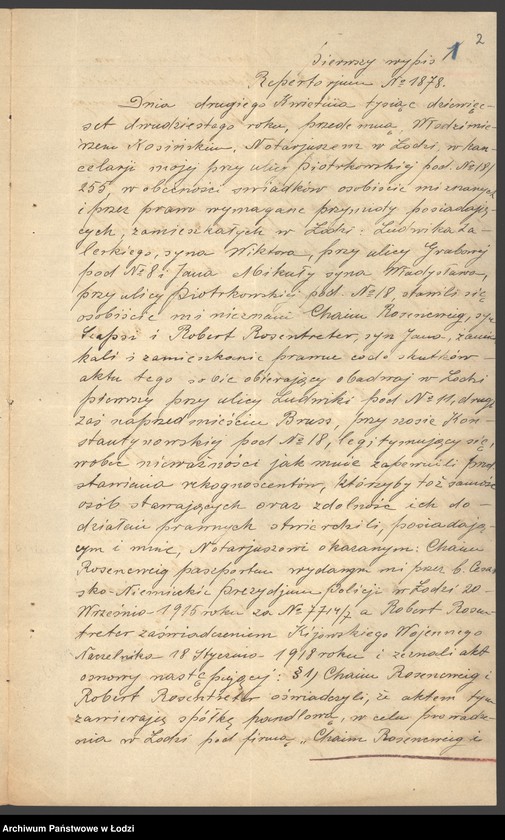 2
1
Pierwszy wypis
Repertorjum № 1878.
Dnia drugiego Kwietnia tysiąc dziewięć-
set dwudziestego roku, przede mną, Włodzimie-
rzem Kosińskim, Notarjuszem w Łodzi, w kan-
celarji mojej przy ulicy Piotrkowskiej pod № 18/
255, w obecności świadków osobiście mi znanych
i przez prawo wymagane przymioty posiadają-
cych, zamieszkałych w Łodzi: Ludwika Za-
lerskiego, syna Wiktora, przy ulicy Grabowej
pod № 8 i Jana Mikuły syna Władysława,
przy ulicy Piotrkowskiej pod № 18, stawili się
osobiście mi nieznani Chaim Rosencweig, syn
i Robert Rosentreter, syn Jana, zamiesz
kali i zamieszkanie prawne co do skutków
aktu tego sobie obierający obadwaj w Łodzi
pierwszy przy ulicy Ludwiki pod № 11, drugi
zaś na przedmieściu Bruss, przy szosie Kon-
stantynowskiej pod № 18, legitymujący się,
wobec niemożności jak mnie zapewnili przed
stawienia rekognoscentów, którzyby tożsamość
osób stawających oraz zdolność ich do
działań prawnych stwierdzili, posiadają-
cym i mnie, Notarjuszowi okazanym: Chaim
Rosencweig paszportem wydanym mi przez b. Cesar
sko-Niemieckie Prezydjum Policji w Łodzi 20
Września 1915 roku za № 7714/7 a Robert Rosen-
treter zaświadczeniem Kijowskiego Wojennego
Naczelnika 18 Stycznia 1918 roku i zeznali akt
osnowy następującej: § 1) Chaim Rosencweig i
Robert Rosentreter oświadczyli, że aktem tym
zawierają spółkę handlową, w celu prowadze-
nia w Łodzi pod firmą „Chaim Rosencweig i
Archiwum Państwowe w Łodzi